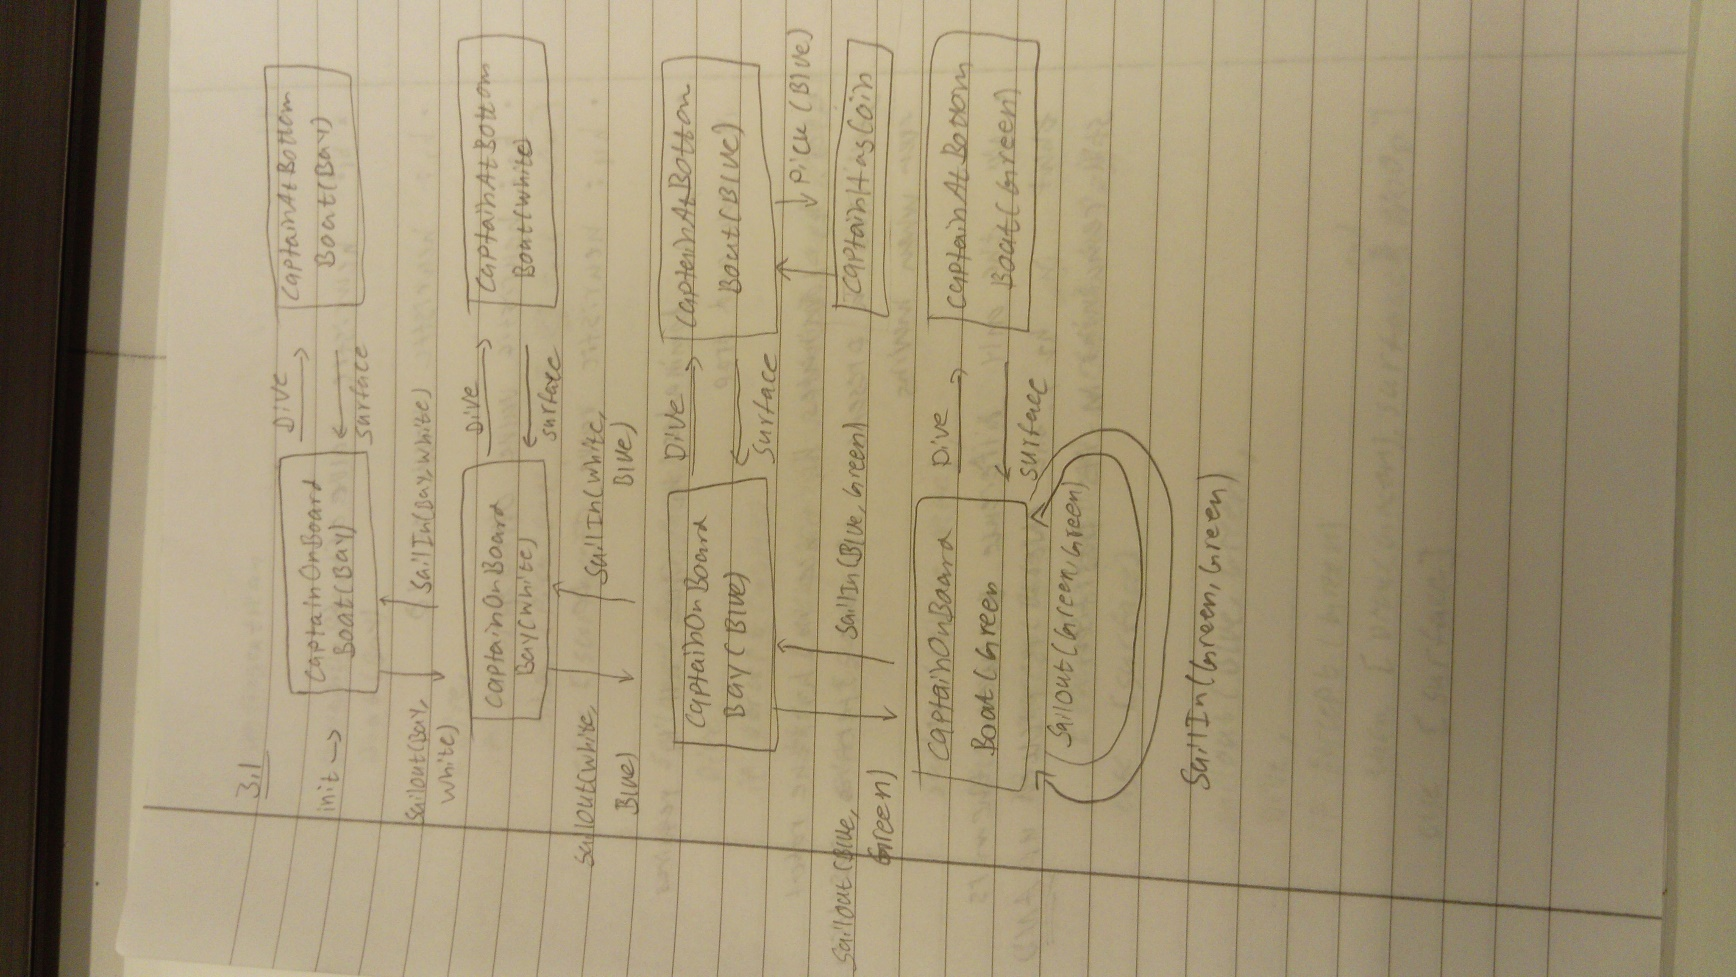 3.1
init →
CaptainOnBoard
Boat(Bay)
Dive
surface
CaptainAtBottom
Boat(Bay)
Sailout(Bay,
White)
SailIn(Bay,White)
CaptainOnBoard
Bay(White)
Dive
surface
CaptainAtBottom
Boat(White)
Sailout(White,
Blue)
SailIn(White,
Blue)
CaptainOnBoard
Bay(Blue)
Dive
Surface
CaptainAtBottom
Boat(Blue)
Pick(Blue)
CaptainHasCoin
Sailout(Blue,
Green)
SailIn(Blue,Green)
CaptainOnBoard
Boat(Green
Dive
surface
CaptainAtBottom
Boat(Green)
Sailout(Green,Green)
SailIn(Green,Green)